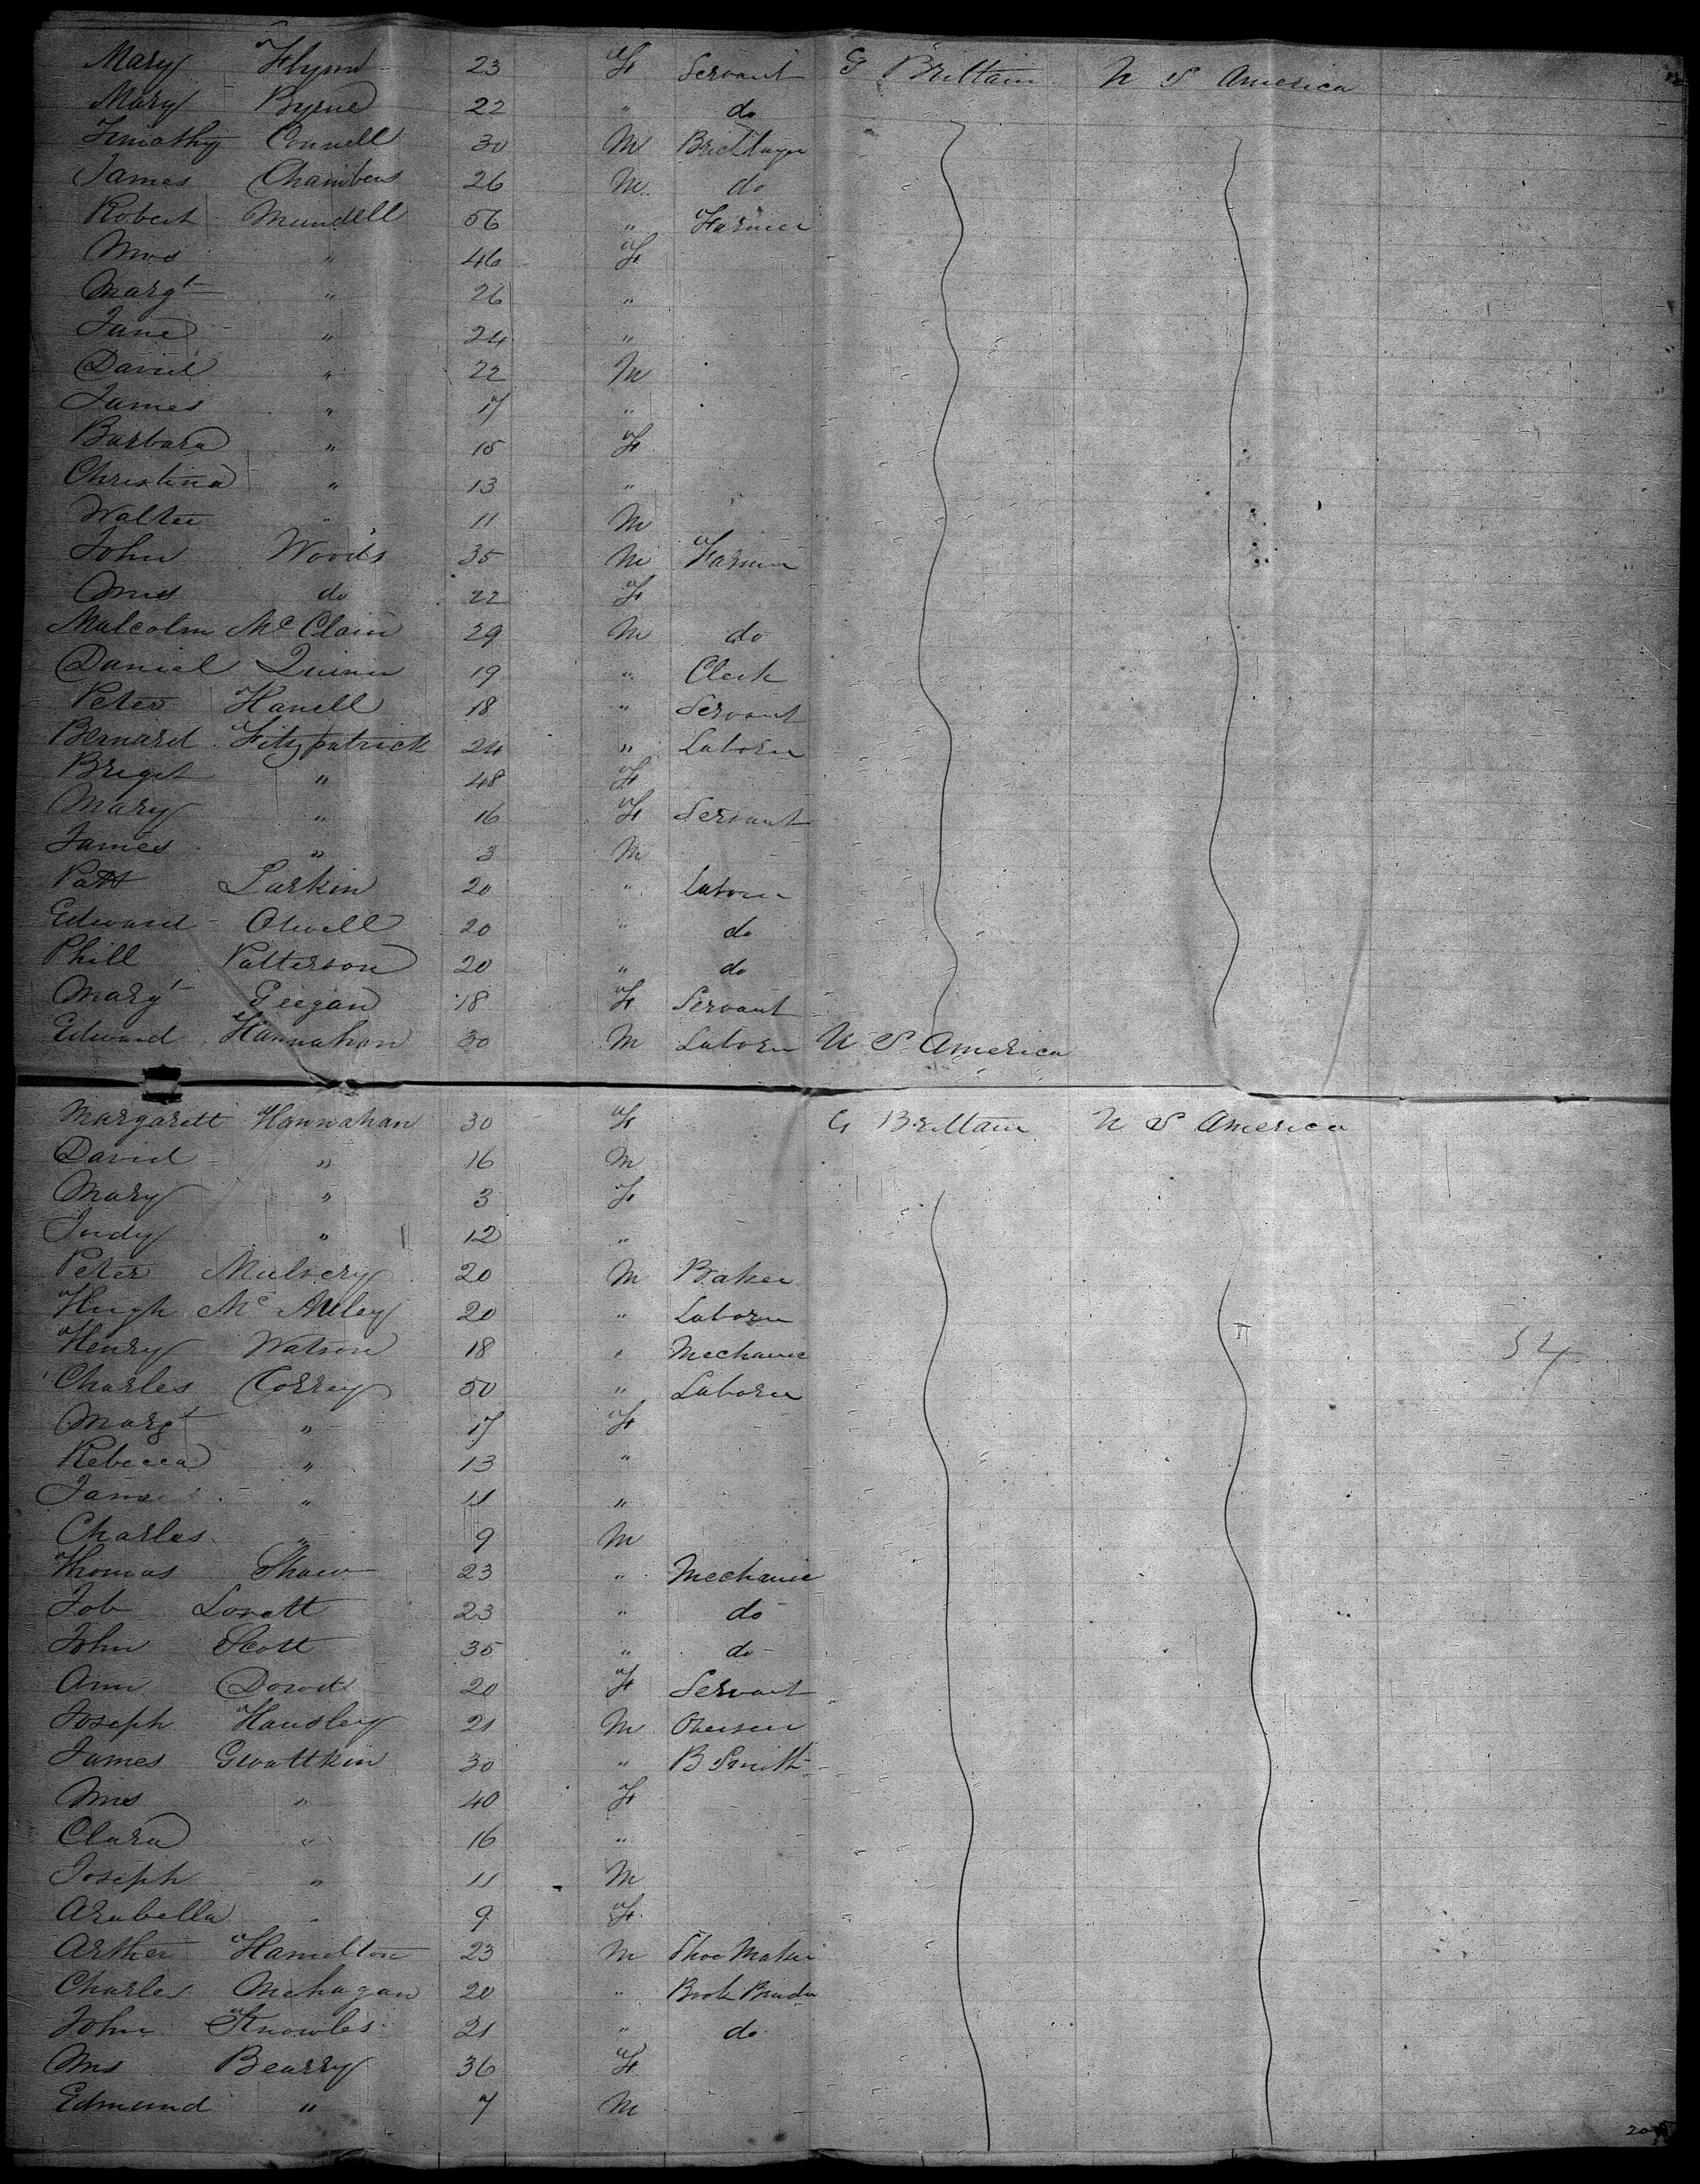 Mary Flynn 23 F Servant G Brittain U S America
Mary Byrne 22 " do
Timothy Connell 30 M Bricklayer
James Chambers 26 M do
Robert Mundell 56 " Farmer
Mrs " 46 F
Margt " 26 "
Jane " 24 "
David " 22 M
James " 17 "
Barbara " 15 F
Christina " 13 "
Walter " 11 M
John Woods 35 M Farmer
Mrs do 22 F
Malcolm McClain 29 M do
Daniel Quinn 19 " Clerk
Peter Hanell 18 " Servant
Bernard Fitzpatrick 24 " Laborer
Briget " 48 F
Mary " 16 F Servant
James " 3 M
Patt Larkin 20 " Laborer
Edward Otwell 20 " do
Phill Patterson 20 " do
Margt Geegan 18 F Servant
Edward Hannahan 30 M Laborer U S America
Margarett Hannahan 30 F G Brittain U S America
David " 16 M
Mary " 3 F
Judy " 12 "
Peter 20 M Baker
Hugh McAuley 20 " Laborer
Henry Watson 18 " Mechanic
Charles Correy 50 " Laborer
54
Margt " 17 F
Rebecca " 13 "
Jane " 11 "
Charles " 9 M
Thomas Shaw 23 " Mechanic
Job Lovett 23 " do
John Scott 35 " do
Ann Dowd 20 F Servant
Joseph Handley 21 M Overseer
James Gwattkin 30 " B Smith
Mrs " 40 F
Clara " 16 "
Joseph " 11 M
Arabella " 9 F
Arther Hamilton 23 M Shoe Maker
Charles Mchagan 20 " Book Binder
John Knowles 21 " do
Mrs Bearry 36 F
Edmund " 7 M